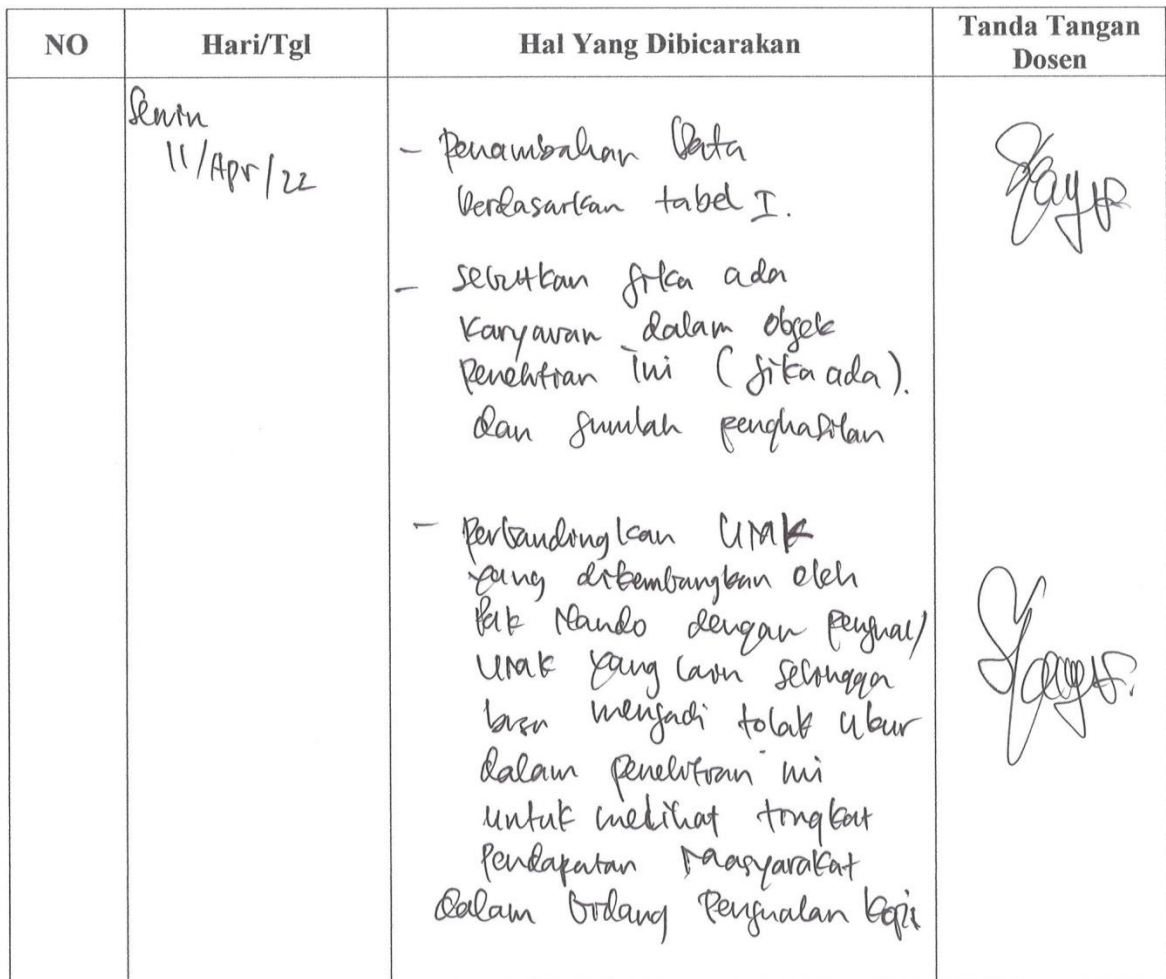 NO Hari/Tgl Hal Yang Dibicarakan Tanda Tangan Dosen
Senin
11/Apr/22
- Penambahan Data
berdasarkan tabel I.
- sebutkan jika ada
karyawan dalam objek
penelitian ini (jika ada).
dan jumlah penghasilan
- Perbandingkan UMK
yang dikembangkan oleh
Pak Nando dengan penjual/
UMK yang lain sehingga
bisa menjadi tolak ukur
dalam penelitian ini
untuk melihat tingkat
Pendapatan Maasyarakat
dalam bidang Penjualan kopi